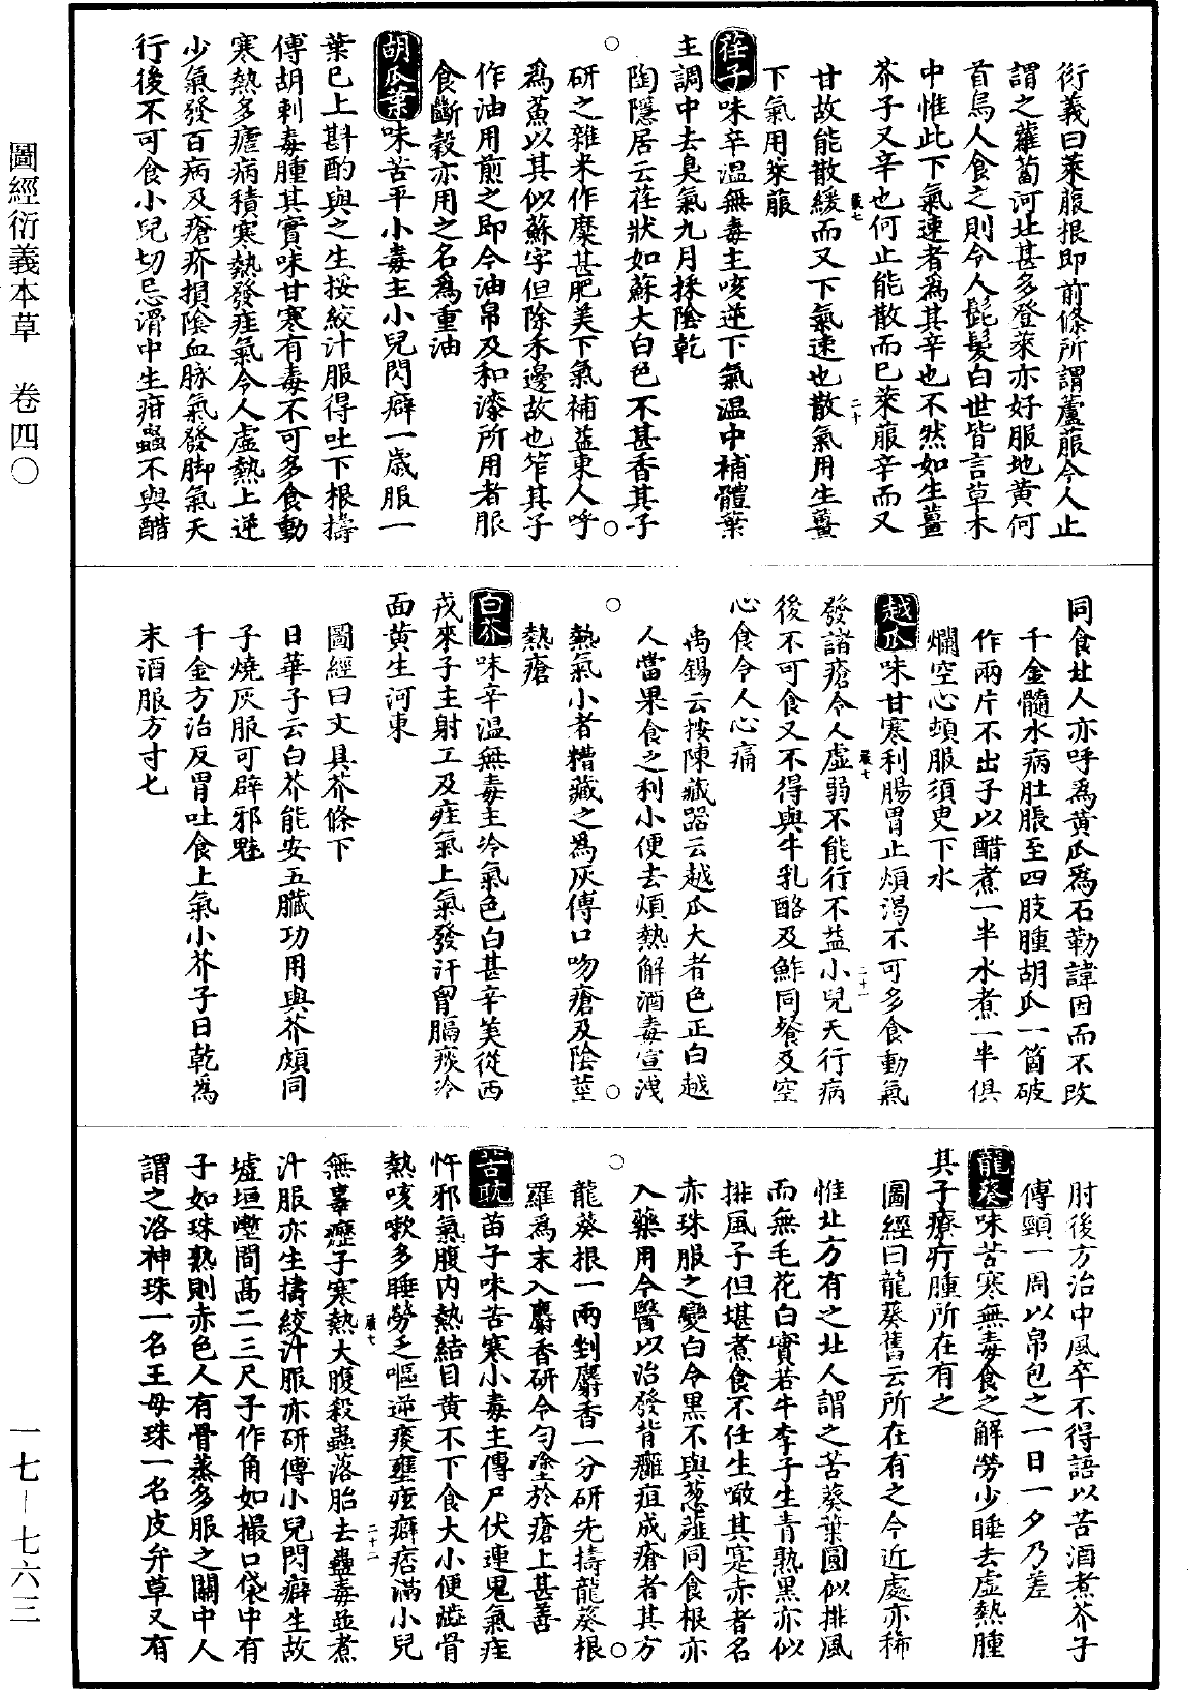 圖經衍義本草　卷四〇
一七－七六三
衍義曰萊菔根即前條所謂蘆菔今人止
謂之蘿蔔河北甚多登萊亦好服地黃何
首烏人食之則令人髭髮白世皆言草木
中惟此下氣速者為其辛也不然如生薑
芥子又辛也何止能散而巳萊菔辛而又
甘故能散緩而又下氣速也散氣用生薑
下氣用萊菔
荏子味辛溫無毒主咳逆下氣溫中補體葉
主調中去臭氣九月採陰乾
陶隱居云荏狀如蘇大白色不甚香其子
研之雜米作糜甚肥美下氣補益東人呼
為䕡以其似蘇字但除禾邊故也笮其子
作油用煎之即今油帛及和漆所用者服
食斷穀亦用之名為重油
胡瓜葉味苦平小毒主小兒閃癖一歲服一
葉巳上斟酌與之生挼絞汁服得吐下根擣
傅胡刺毒腫其實味甘寒有毒不可多食動
寒熱多瘧病積寒熱發疰氣令人虛熱上逆
少氣發百病及瘡疥損陰血脉氣發脚氣天
行後不可食小兒切忌滑中生疳蟲不與醋
同食北人亦呼為黃瓜為石勒諱因而不改
千金髓水病肚脹至四肢腫胡瓜一箇破
作兩片不出子以醋煮一半水煮一半俱
爛空心頓服須臾下水
越瓜味甘寒利腸胃止煩渴不可多食動氣
發諸瘡令人虛弱不能行不益小兒天行病
後不可食又不得與牛乳酪及鮓同餐及空
心食令人心痛
禹錫云按陳藏器云越瓜大者色正白越
人當果食之利小便去煩熱解酒毒宣洩
熱氣小者糟藏之為灰傅口吻瘡及陰莖
熱瘡
白芥味辛溫無毒主冷氣色白甚辛美從西
戎來子主射工及疰氣上氣發汗胷膈痰冷
面黃生河東
圖經曰文具芥條下
日華子云白芥能安五臟功用與芥頗同
子燒灰服可辟邪魅
千金方治反胃吐食上氣小芥子日乾為
末酒服方寸匕
肘後方治中風卒不得語以苦酒煮芥子
傅頸一周以帛包之一日一夕乃差
龍葵味苦寒無毒食之解勞少睡去虛熱腫
其子療疔腫所在有之
圖經曰龍葵舊云所在有之今近處亦稀
惟北方有之北人謂之苦葵葉圓似排風
而無毛花白實若牛李子生青熟黑亦似
排風子但堪煮食不任生噉其寔赤者名
赤珠服之變白令黑不與葱薤同食根亦
入藥用今醫以治發背癰疽成瘡者其方
龍葵根一兩剉麝香一分研先擣龍葵根
羅為末入麝香研令勻塗於瘡上甚善
苦耽苗子味苦寒小毒主傳尸伏連鬼氣疰
忤邪氣腹內熱結目黃不下食大小便澁骨
熱咳嗽多睡勞乏嘔逆痰壅痃癖痞滿小兒
無辜癧子寒熱大腹殺蟲落胎去蠱毒並煮
汁服亦生擣絞汁服亦研傅小兒閃癖生故
墟垣壍間高二三尺子作角如撮口袋中有
子如珠熟則赤色人有骨蒸多服之關中人
謂之洛神珠一名王母珠一名皮弁草又有